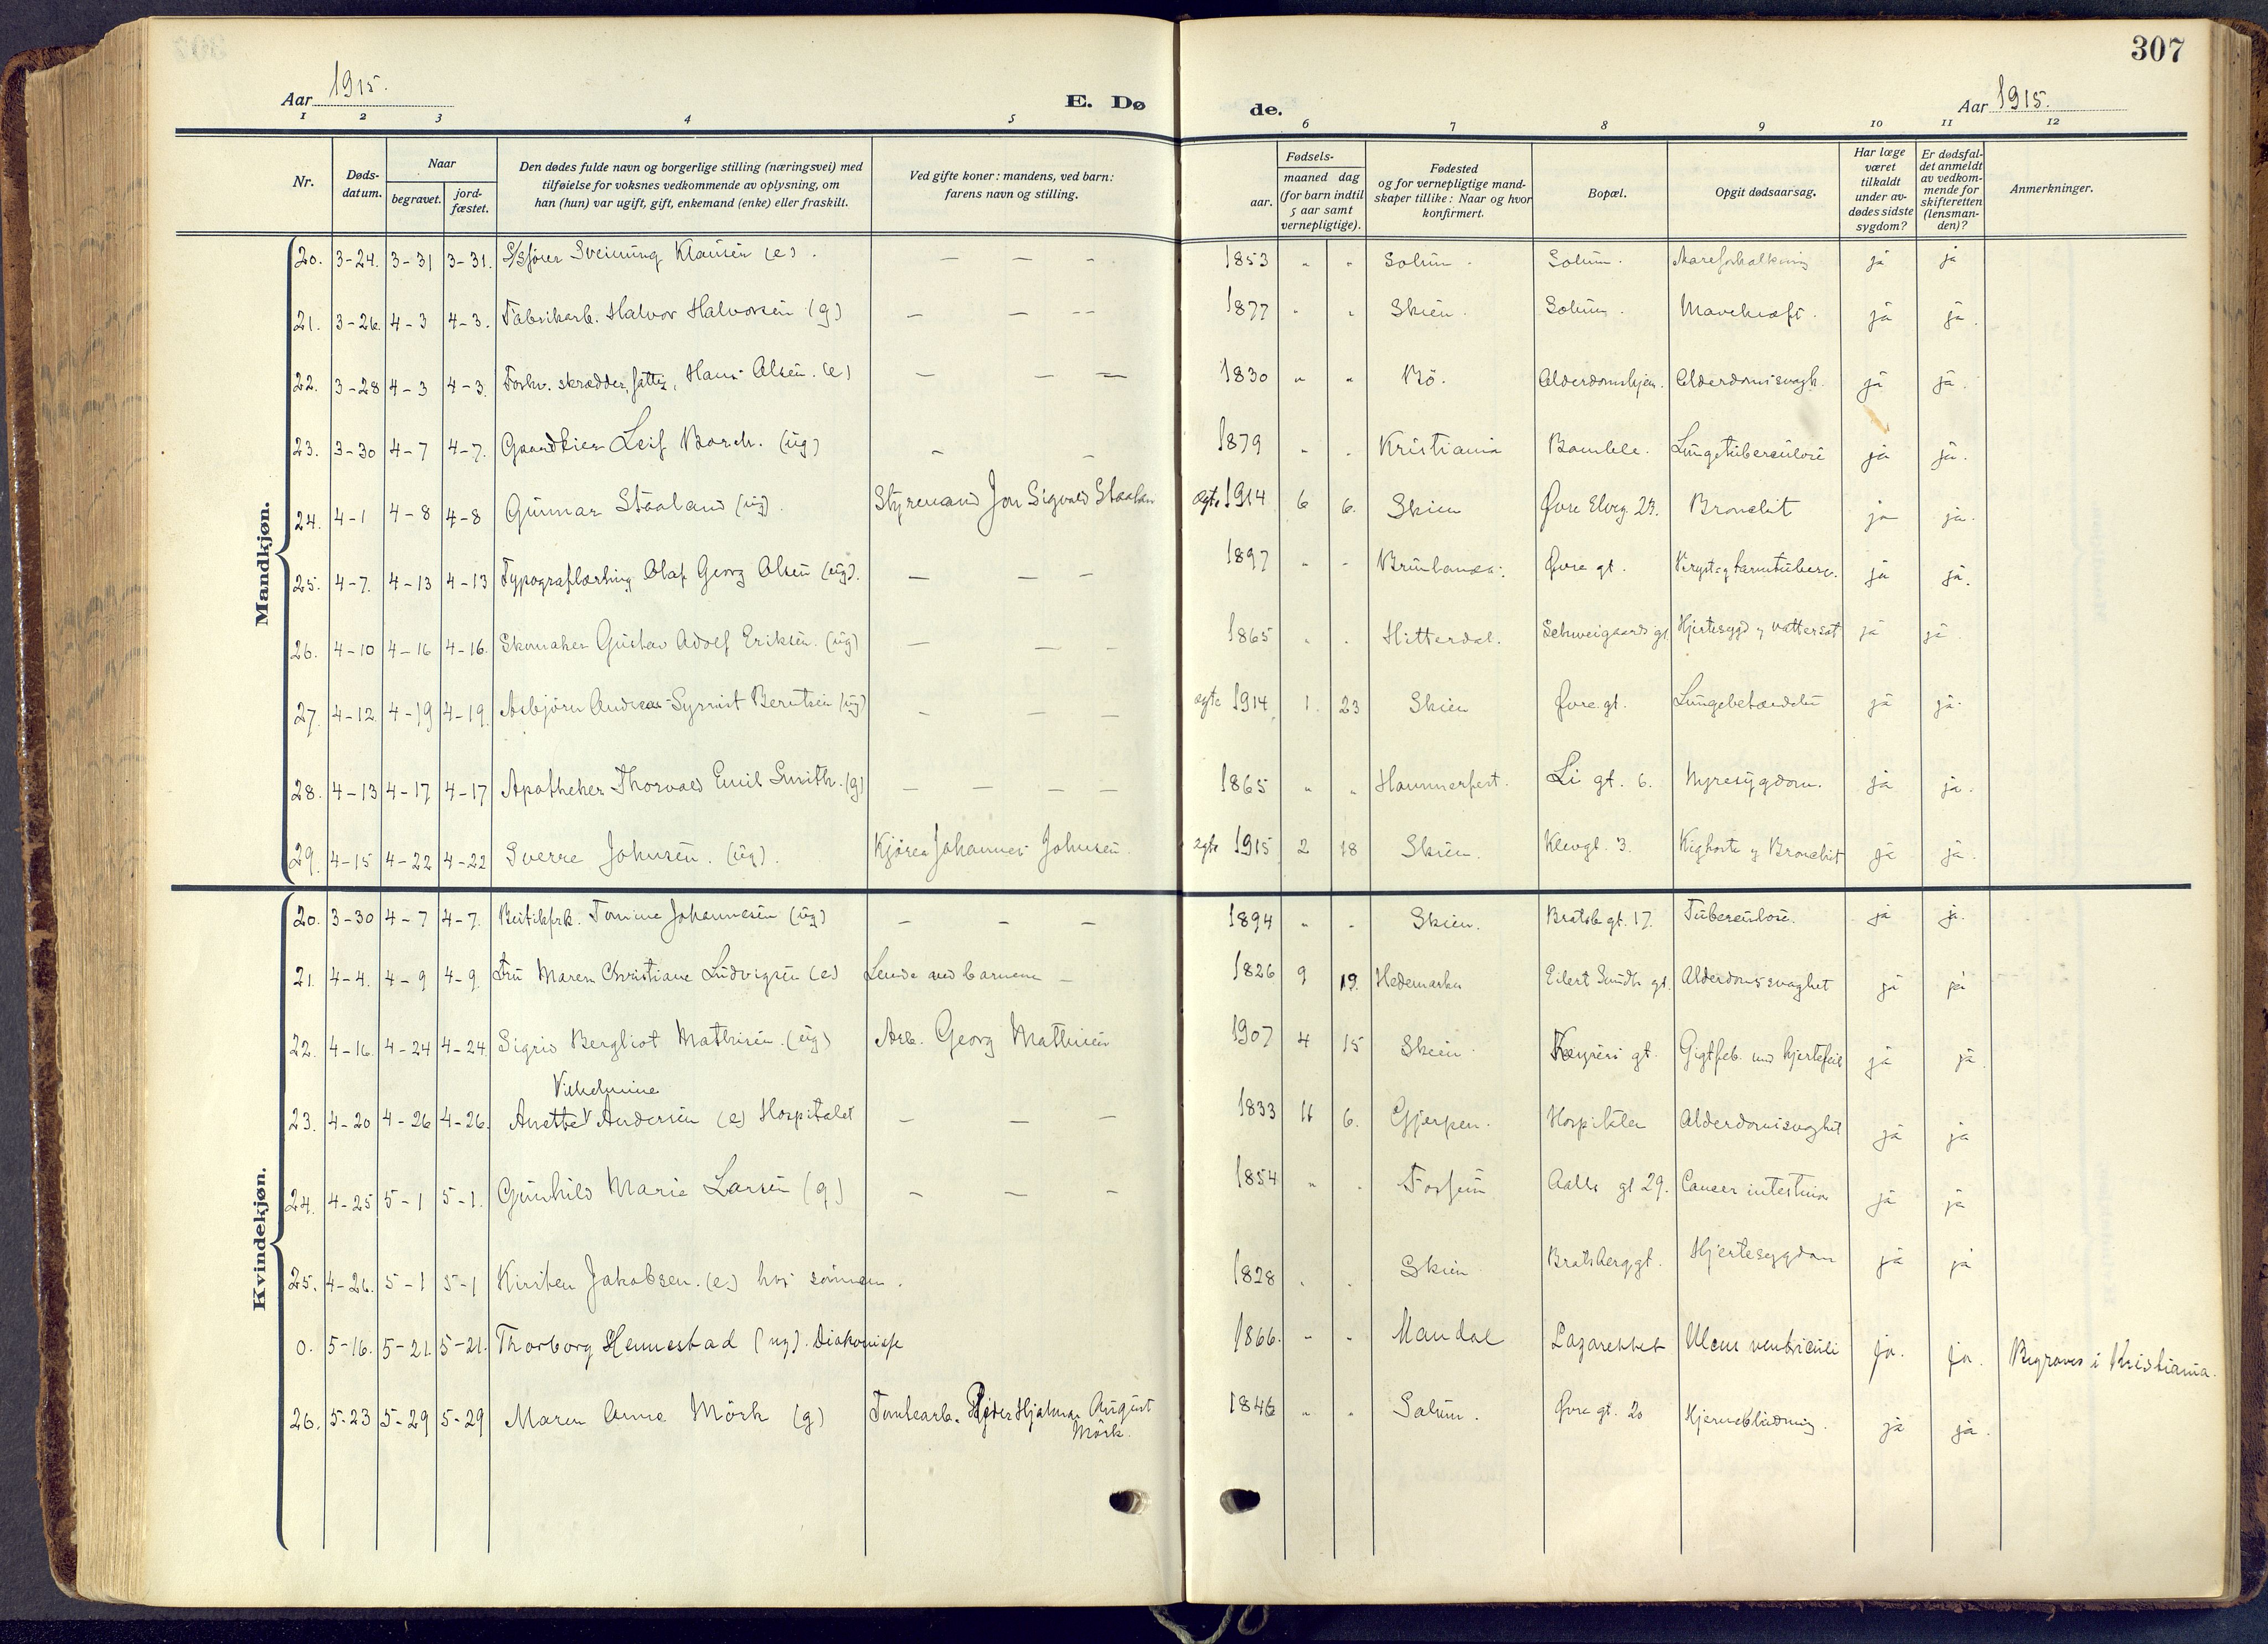 307
Aar 1915.
E. Dø de.
Aar 1915.
1 2 3 4 5 6 7 8 9 10 11 12
Nr.
Døds-
datum.
Naar
begravet.
jord-
fæstet.
Den dødes fulde navn og borgerlige stilling (næringsvei) med
tilføielse for voksnes vedkommende av oplysning, om
han (hun) var ugift, gift, enkemand (enke) eller fraskilt.
Ved gifte koner: mandens, ved barn:
farens navn og stilling.
Fødsels-
aar.
maaned dag
(for barn indtil
5 aar samt
vernepligtige).
Fødested
og for vernepligtige mand-
skaper tillike: Naar og hvor
konfirmert.
Bopæl.
Opgit dødsaarsag.
Har læge
været
tilkaldt
under av-
dødes sidste
sygdom?
Er dødsfal-
det anmeldt
av vedkom-
mende for
skifteretten
(lensman-
den)?
Anmerkninger.
Mandkjøn.
20. 3-24. 3-31 3-31. Sveinung Klausen (e). — — - - 1853 " " Solum. Solum. Aareforkalkning ja ja
21. 3-26. 4-3 4-3. Fabrikarb. Halvor Halvorsen (g) — — -- 1877 " " Skien. Solum. Mavekræft. ja ja.
22. 3-28 4-3 4-3. Forhv. skrædder, fattig, Hans Olsen. (e) — — — 1830 " " Bö. Alderdomshjem. Alderdomssvagh. ja ja.
23. 3-30 4-7 4-7. Leif Borch. (ug) - - 1879 " " Kristiania Bamble. Lungetuberculose ja ja.
24. 4-1 4-8 4-8 Gunnar Staaland (ug). Styremand Jon Sigvald ægte 1914 6 6. Skien Øvre Elveg. 24. Bronchit ja ja.
25. 4-7. 4-13 4-13 Typograflærling Olaf Georg Olsen (ug). — — - 1897 " " Brunlanæs. Øvre gt. Bryst og tarmtuberc. ja ja.
26. 4-10 4-16 4-16. Skomaker Gustav Adolf Eriksen. (ug) — — - 1865 " " Hitterdal. Schweigaards gt Hjertesygd og vattersot ja ja.
27. 4-12. 4-19 4-19. Asbjörn Andreas Berntsen (ug) - — - ægte 1914 1. 23 Skien Øvre gt. Lungebetændelse ja ja.
28. 4-13 4-17 4-17 Apotheker Thorvald Emil Smith. (g) — — — — 1865 " " Hammerfest. Li gt. 6. Nyresygdom. ja ja.
29. 4-15 4-22 4-22 Sverre Johnsen. (ug). Kjører Johannes Johnsen. ægte 1915 2 18 Skien. Klevgt. 3. Kighoste og Bronchit ja ja.
Kvindekjøn.
20. 3-30 4-7 4-7. Butikfrk. Tomine Johannesen (ug) — — — 1894 " " Skien. Bratsb gt. 17. Tuberculose. ja ja.
21. 4-4. 4-9 4-9. Fru Maren Christiane Ludvigsen (e) 1826 9 19. Hedemarken Eilert Sundts gt. Alderdomssvaghet ja ja
22. 4-16. 4-24 4-24. Sigrid Bergliot Mathisen. (ug) Arb. Georg Mathisen 1907 4 15 Skien. Keysers gt. Gigtfeb. med hjertefeil ja ja.
Vilhelmine
23. 4-20 4-26 4-26. Anette V Andersen (e) Hospitalet — — — 1833 11 6. Gjerpen. Hospitalet Alderdomssvaghet ja ja
24. 4-25 5-1 5-1. Gunhild Marie Larsen (g) — — - 1854 " " Fossum Aalls gt 29. Cancer intestina ja ja
25. 4-26. 5-1 5-1 Kirsten Jakobsen. (e) hos sönnen. 1828 " " Skien Bratsberggt. Hjertesygdom ja ja
0. 5-16. 5-21. 5-21. Thorborg Hennestad (ug). Diakonisse 1866. " " Mandal Lazarettet Ulcus ventriculi ja. ja. Begraves i Kristiania.
26. 5-23 5-29 5-29 Maren Anne Mörk (g) Tomtearb. Peder Hjalmar August
Mörk. 1846 " " Solum. Øvre gt. 20 Hjerneblødning. ja ja.